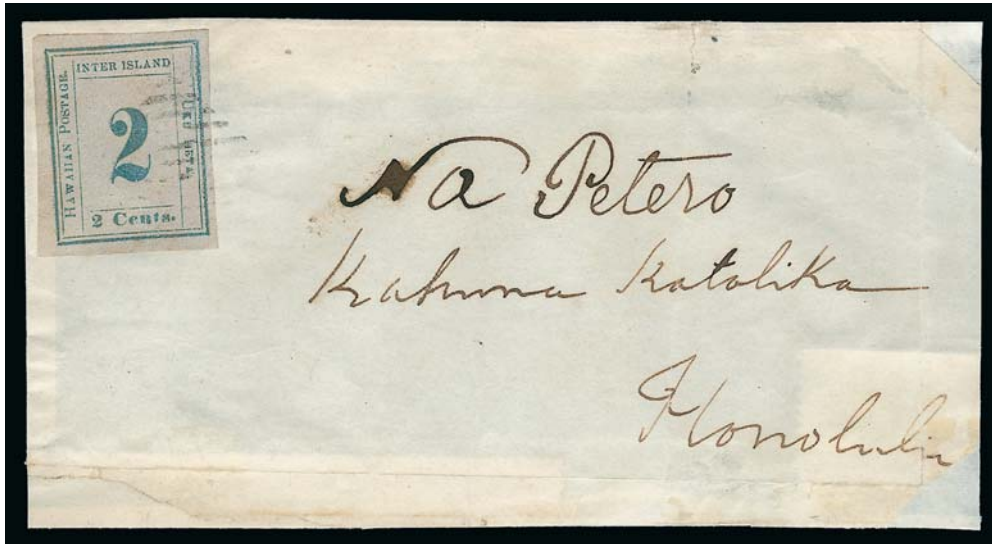 INTER ISLAND
HAWAIIAN POSTAGE.
UKU LETA.
2
2 Cents.
Na Petero
Kahuna Katolika
Honolulu